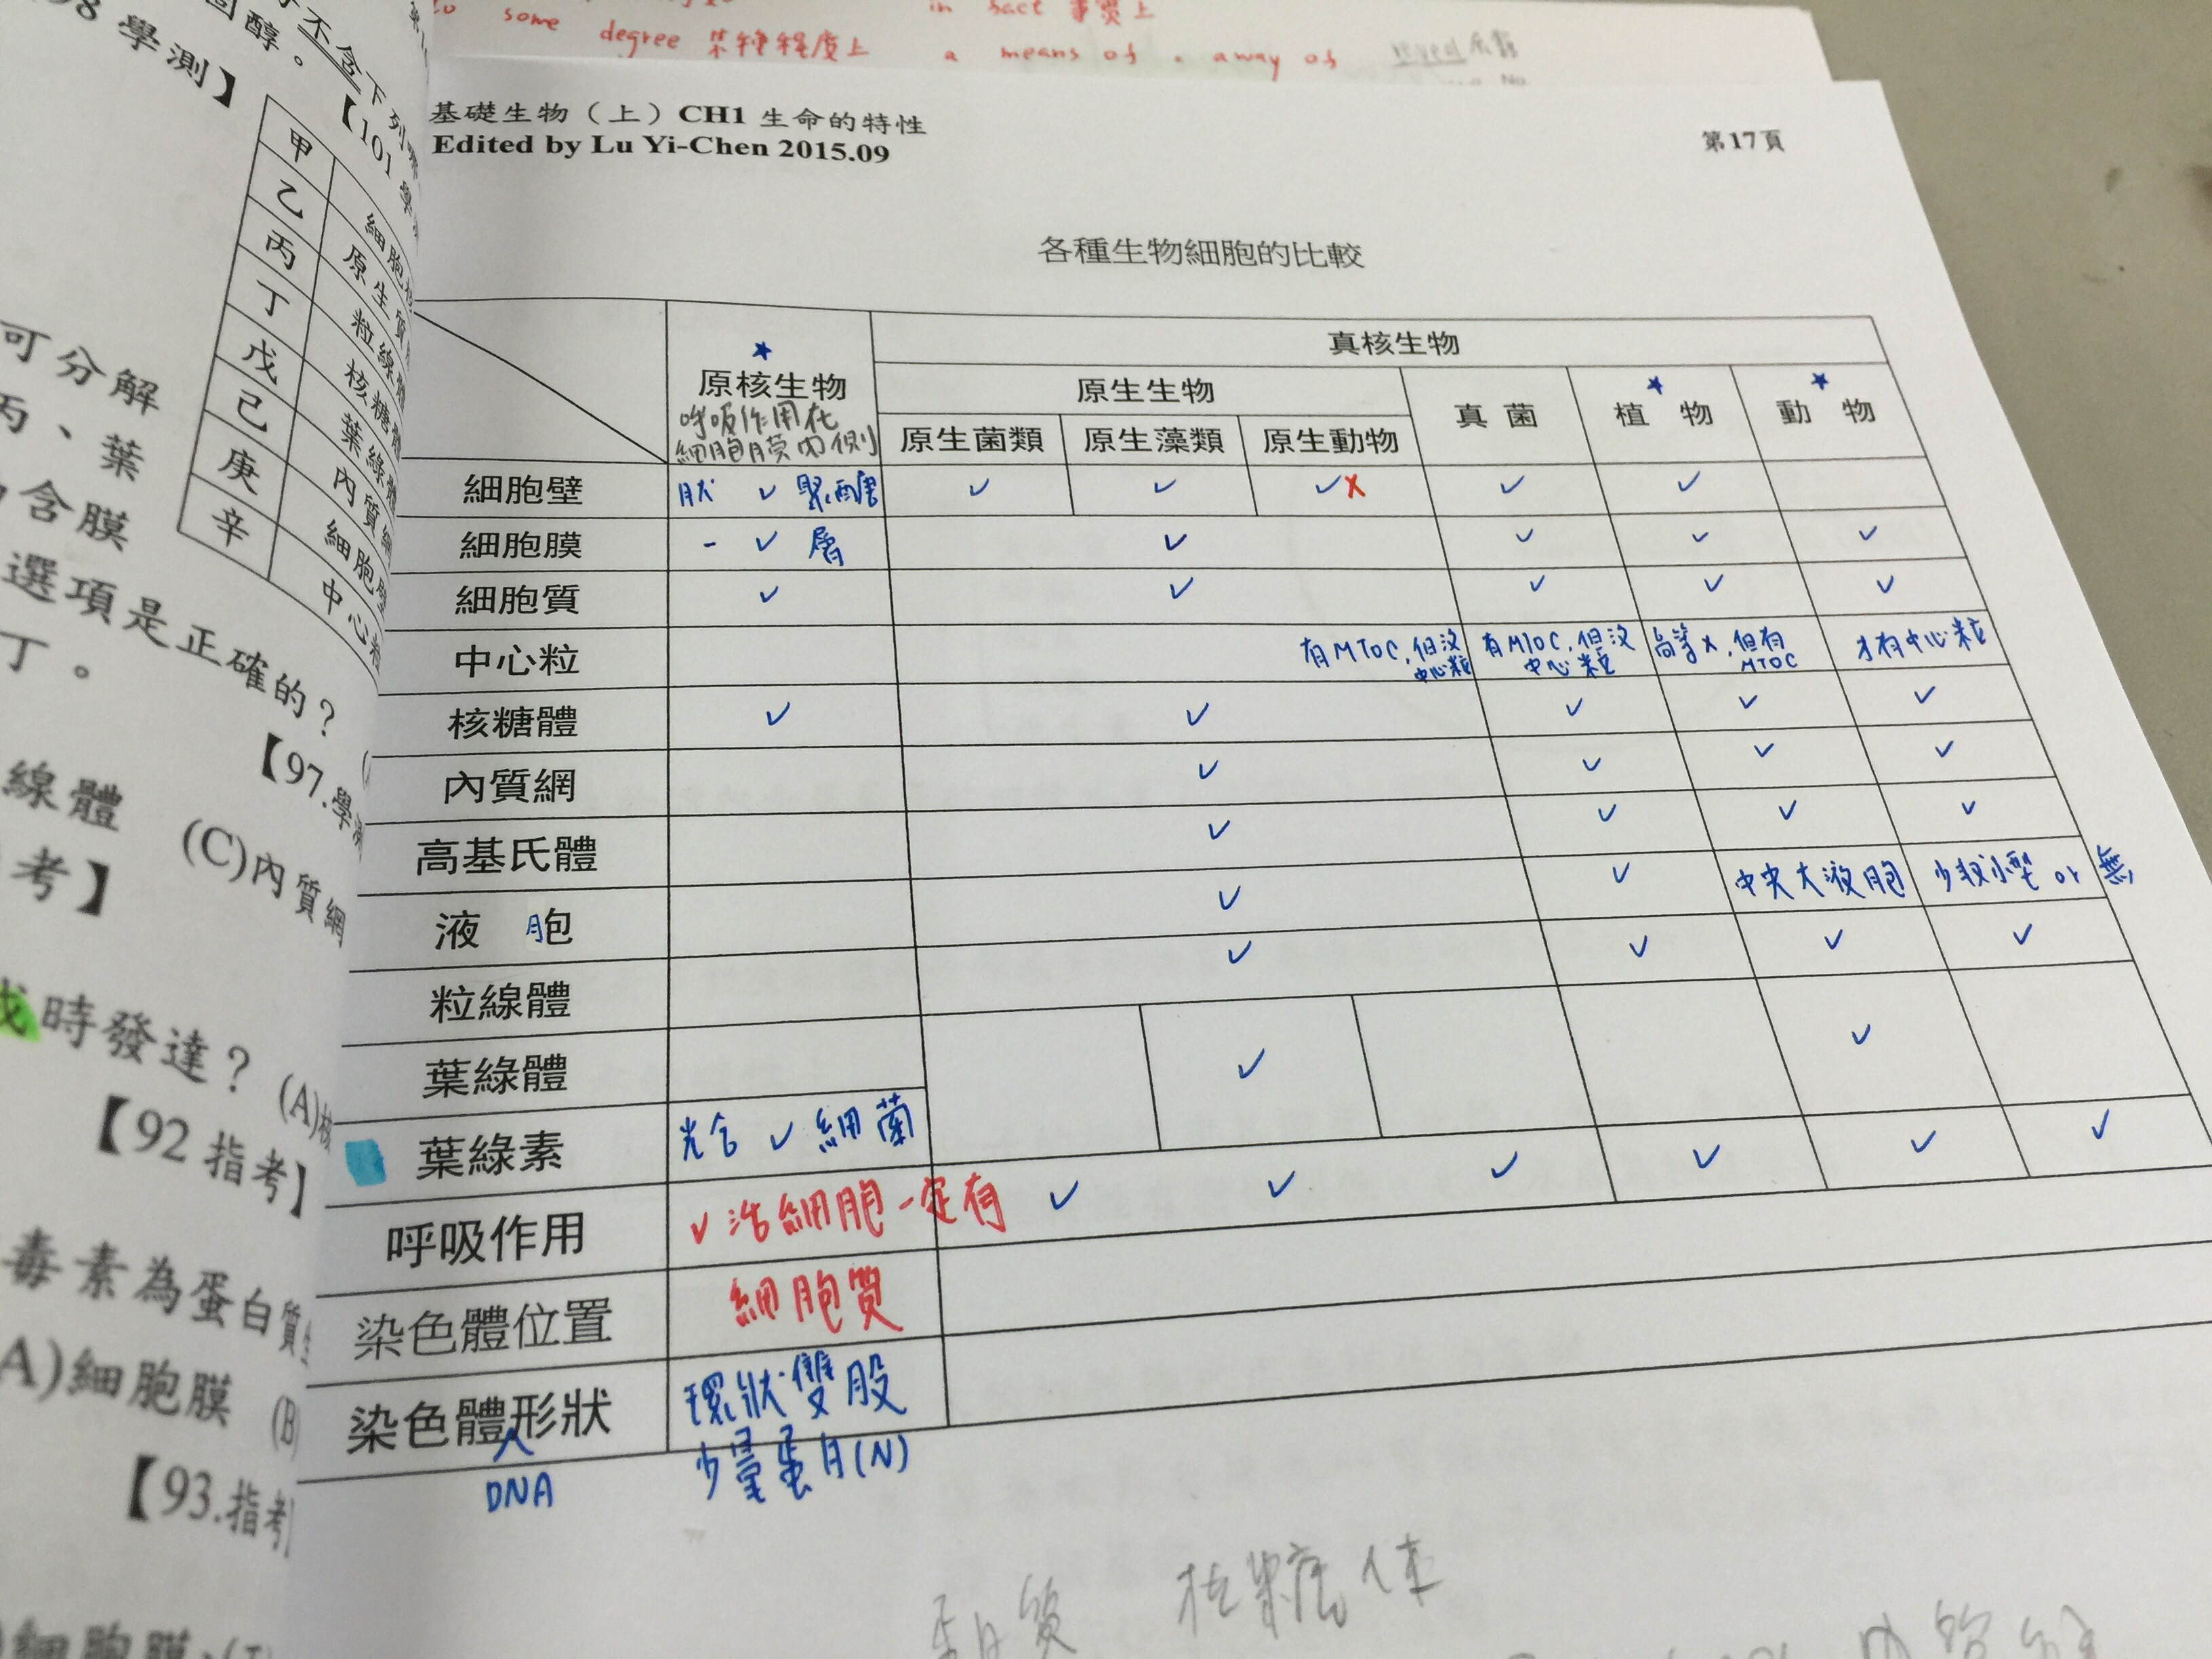 some degree 某種程度上
in fact 事實上
a means of . a way of
基礎生物（上）CH1 生命的特性
Edited by Lu Yi-Chen 2015.09
第17頁
各種生物細胞的比較
★ 原核生物 呼吸作用在細胞膜內側
真核生物
原生生物
原生菌類 原生藻類 原生動物 真菌 ★ 植物 ★ 動物
細胞壁 肽 ✓ 聚醣 ✓ ✓ ✓ X ✓ ✓
細胞膜 - ✓ 層 ✓ ✓ ✓ ✓
細胞質 ✓ ✓ ✓ ✓ ✓
中心粒 有MTOC, 但沒中心粒 有MTOC, 但沒中心粒 高等X, 但有MTOC 才有中心粒
核糖體 ✓ ✓ ✓ ✓ ✓
內質網 ✓ ✓ ✓ ✓
高基氏體 ✓ ✓ ✓ ✓
液胞 ✓ ✓ 中央大液胞 少或小型 or 無
粒線體 ✓ ✓ ✓ ✓
葉綠體 ✓ ✓
葉綠素 光合 ✓ 細菌
呼吸作用 ✓ 活細胞一定有 ✓ ✓ ✓ ✓ ✓ ✓
染色體位置 細胞質
染色體形狀 環狀雙股
DNA 少量蛋白(N)
蛋白質 核糖体
學測】
固醇。
不含下列
【101
甲 細胞
乙 原生質
丙 粒線
丁 核糖
戊 葉綠
己 內質網
庚 細胞壁
辛 中心粒
可分解
丙、葉
含膜
選項是正確的？
丁。
【97.學
線體 (C)內質網
考】
時發達？ (A)核
【92 指考】
毒素為蛋白質
A)細胞膜 (B)
【93.指考
細胞膜